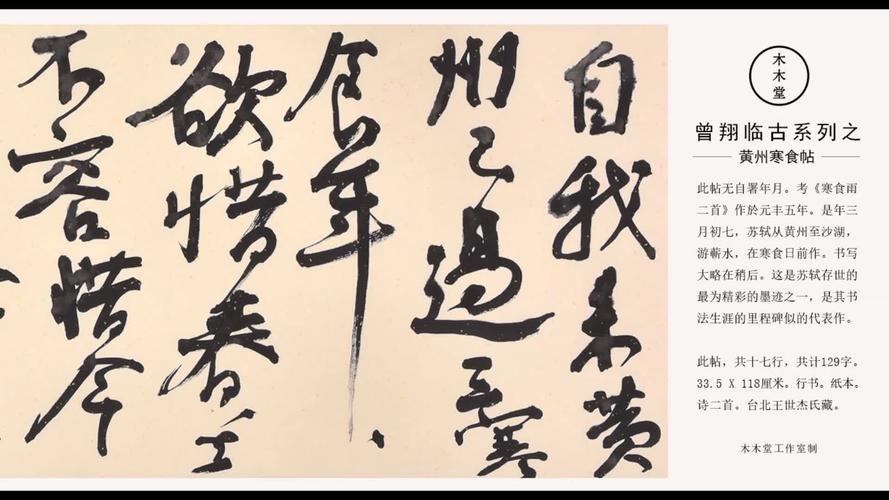 自我来黄
州已過三寒
食年、
欲惜春去
不容惜今
木木堂
曾翔临古系列之
黄州寒食帖
此帖无自署年月。考《寒食雨
二首》作於元丰五年。是年三
月初七,苏轼从黄州至沙湖,
游蕲水,在寒食日前作。书写
大略在稍后。这是苏轼存世的
最为精彩的墨迹之一,是其书
法生涯的里程碑似的代表作。
此帖,共十七行,共计129字。
33.5 X 118厘米。行书。纸本。
诗二首。台北王世杰氏藏。
木木堂工作室制